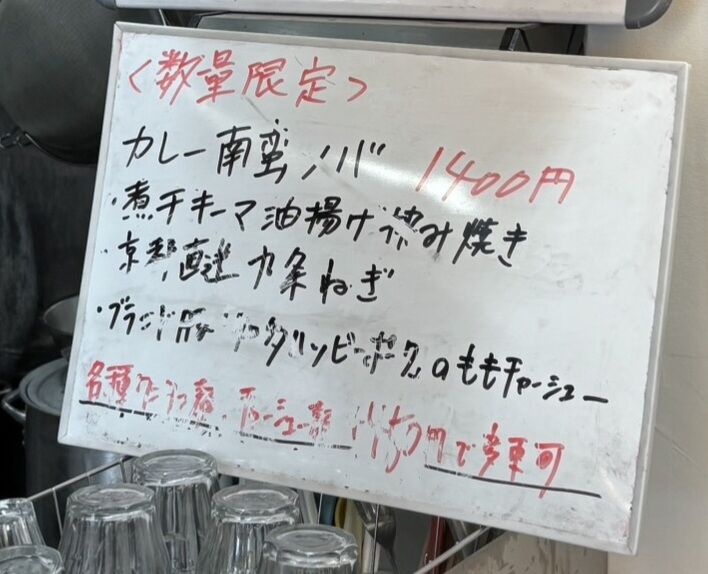 <数量限定>
カレー南蛮ソバ 1400円
・煮干キーマ油揚げ包み焼き
・京都直送 九条ねぎ
・ブランド豚 リンビーポークのももチャーシュー
各種ラーメン チャーシュー 円で変更可